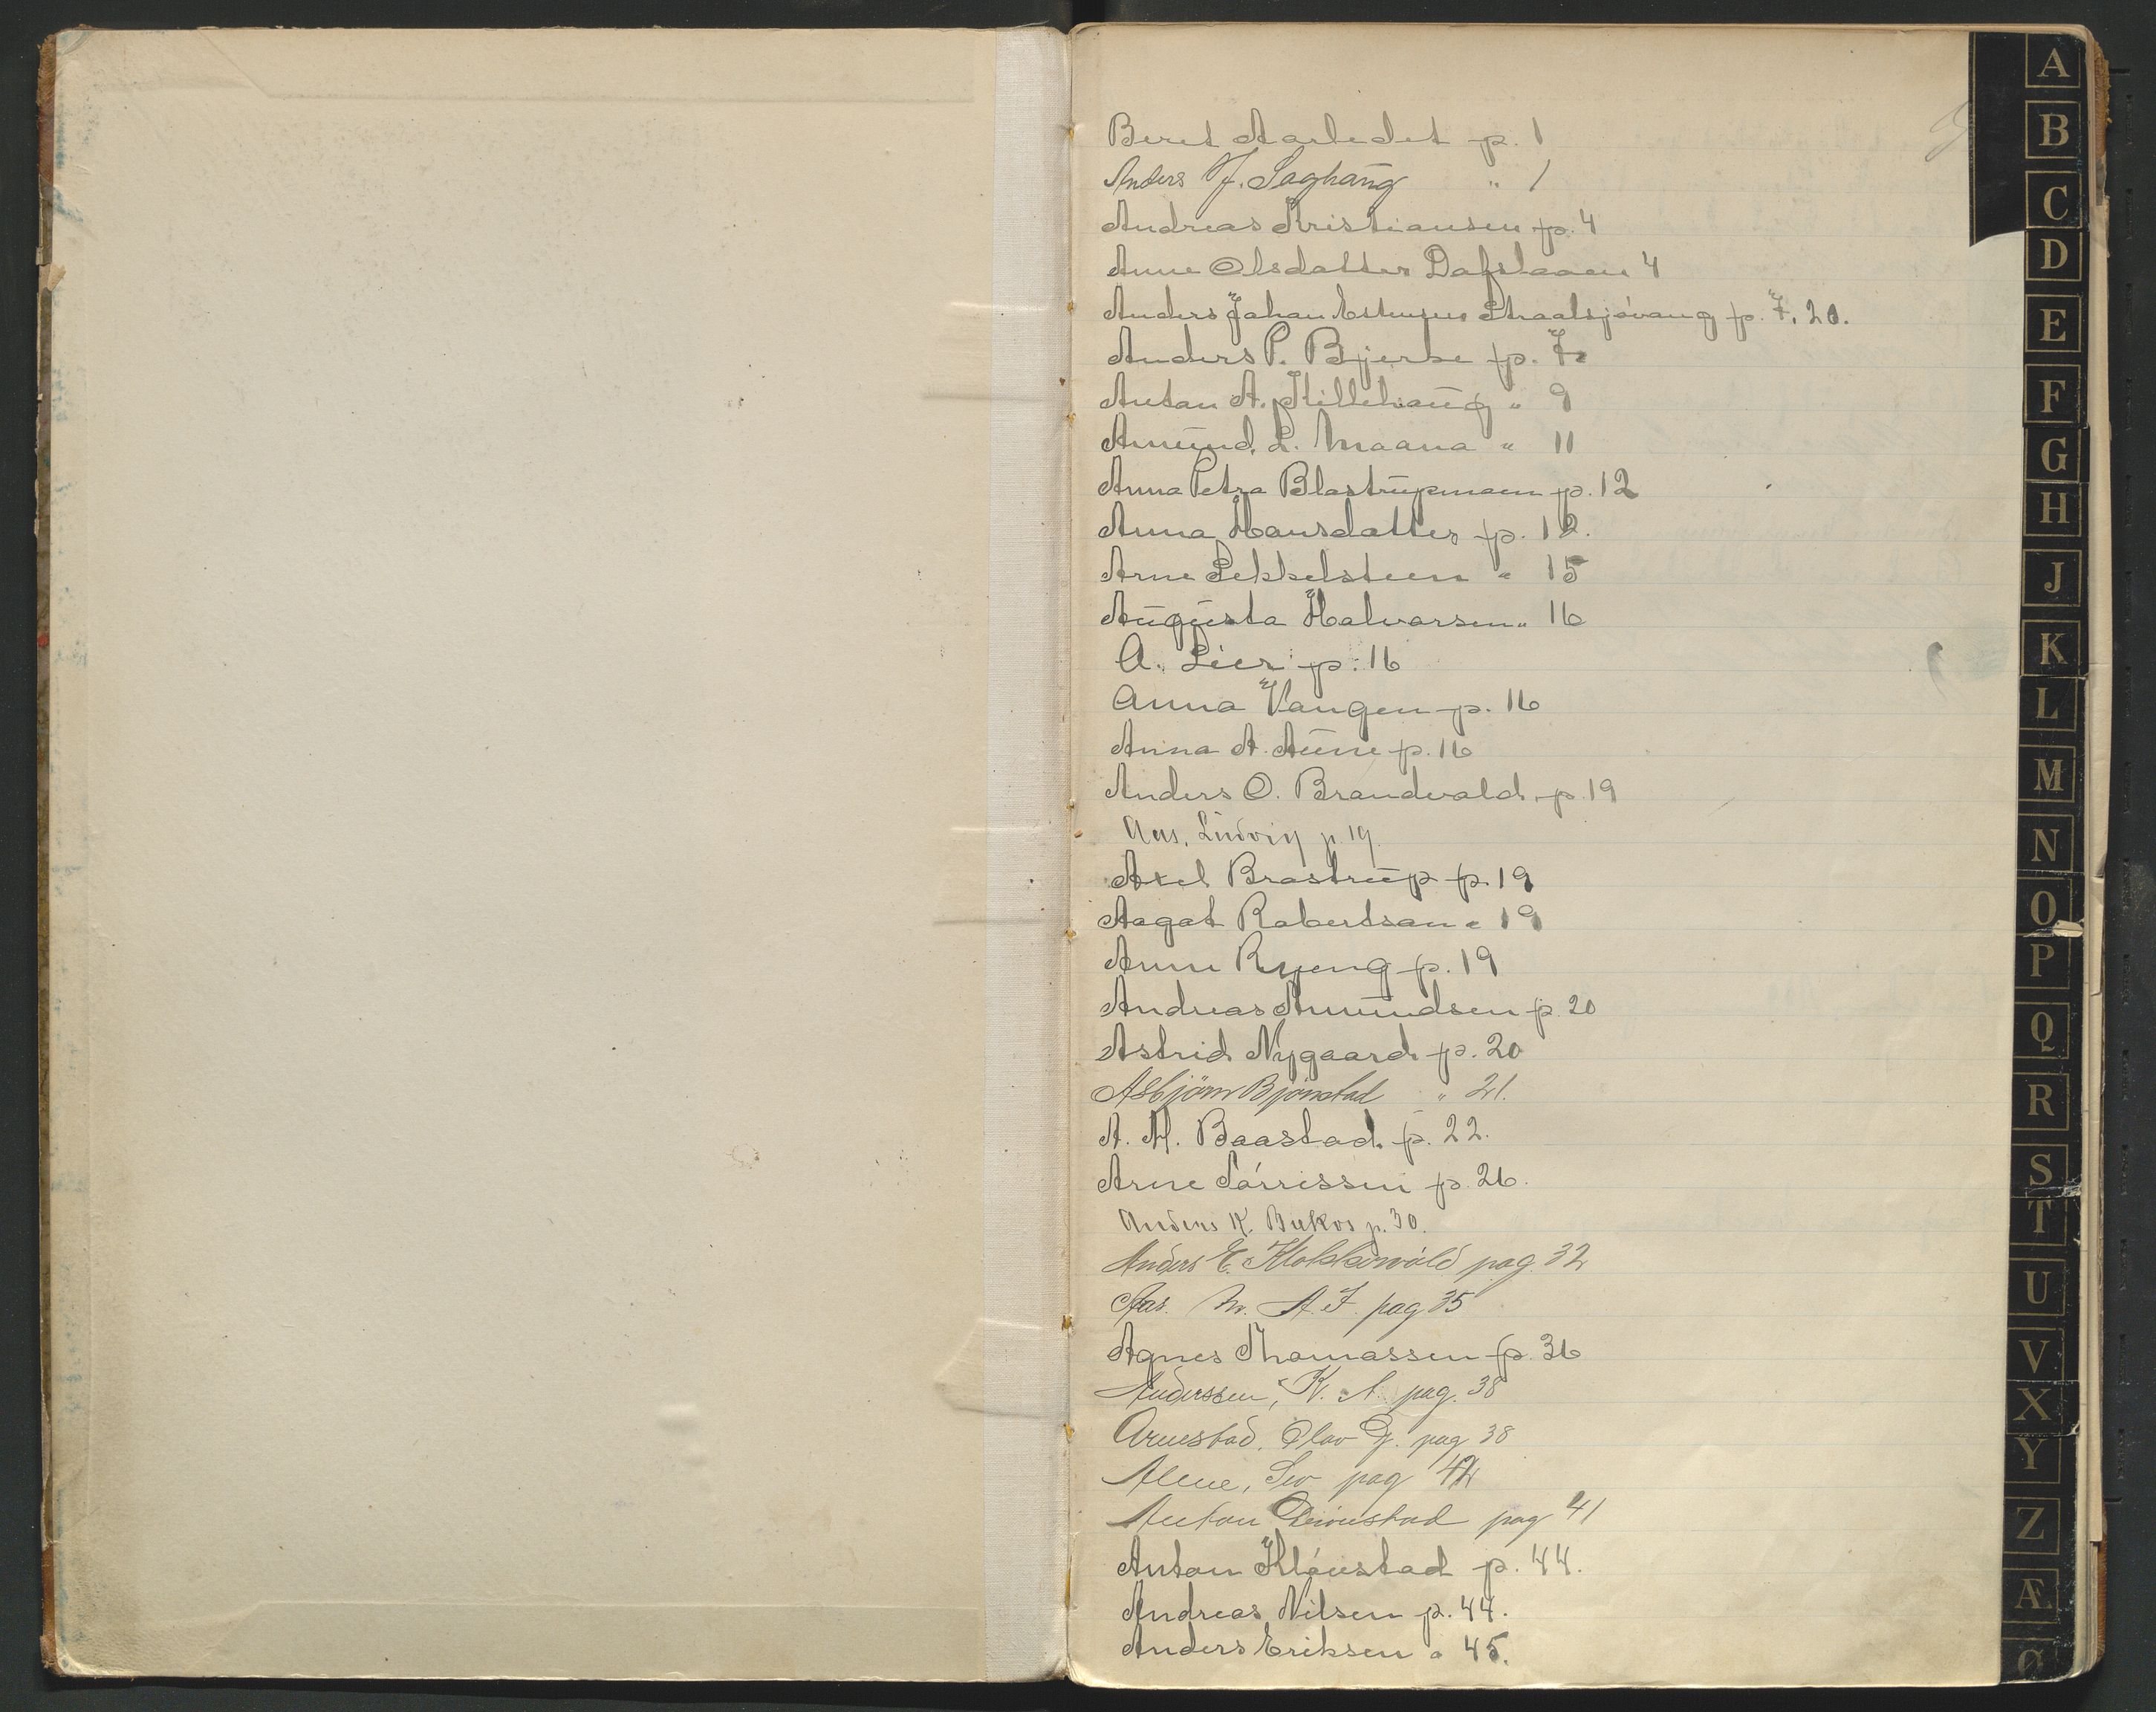 Beret Aarledet p. 1
Anders J. Saghaug " 1
Andreas Kristiansen p. 4
Anne Olsdatter Dafslaaen 4
Anders Johan Estensen Straalsjøvang p. 7, 20.
Anders P. Bjerke p. 7
Anton A. Hillehaug " 9
Amund L. Moana " 11
Anna Petra Blastrupmoen p. 12
Anna Hansdatter p. 12.
Arne Sekkelsteen " 15
Augusta Halvorsen " 16
A. Lier p. 16
Anna Vangen p. 16
Anna A. Aune p. 16
Anders O. Brandvold p. 19
Aas, Ludvig p. 19.
Axel Brostrup p. 19
Aagat Robertson " 19
Anne Ryeng p. 19
Andreas Amundsen p. 20
Astrid Nygaard p. 20
Asbjörn Bjønstad " 21.
A. H. Baastad p. 22.
Arne Tórrissen p. 26.
Anders K. Bukos p. 30.
Anders E. pag. 32
Aas. A. F. pag 35
Agnes Thomassen p. 36
Anderssen, K. A. pag. 38
Arnestad, Olav G. pag 38
Alme, pag 42
Anton pag 41
Anton Klónstad p. 44.
Andreas Nilsen p. 44.
Anders Eriksen " 45.
A
B
C
D
E
F
G
H
J
K
L
M
N
O
P
Q
R
S
T
U
V
X
Y
Z
Æ
Ø